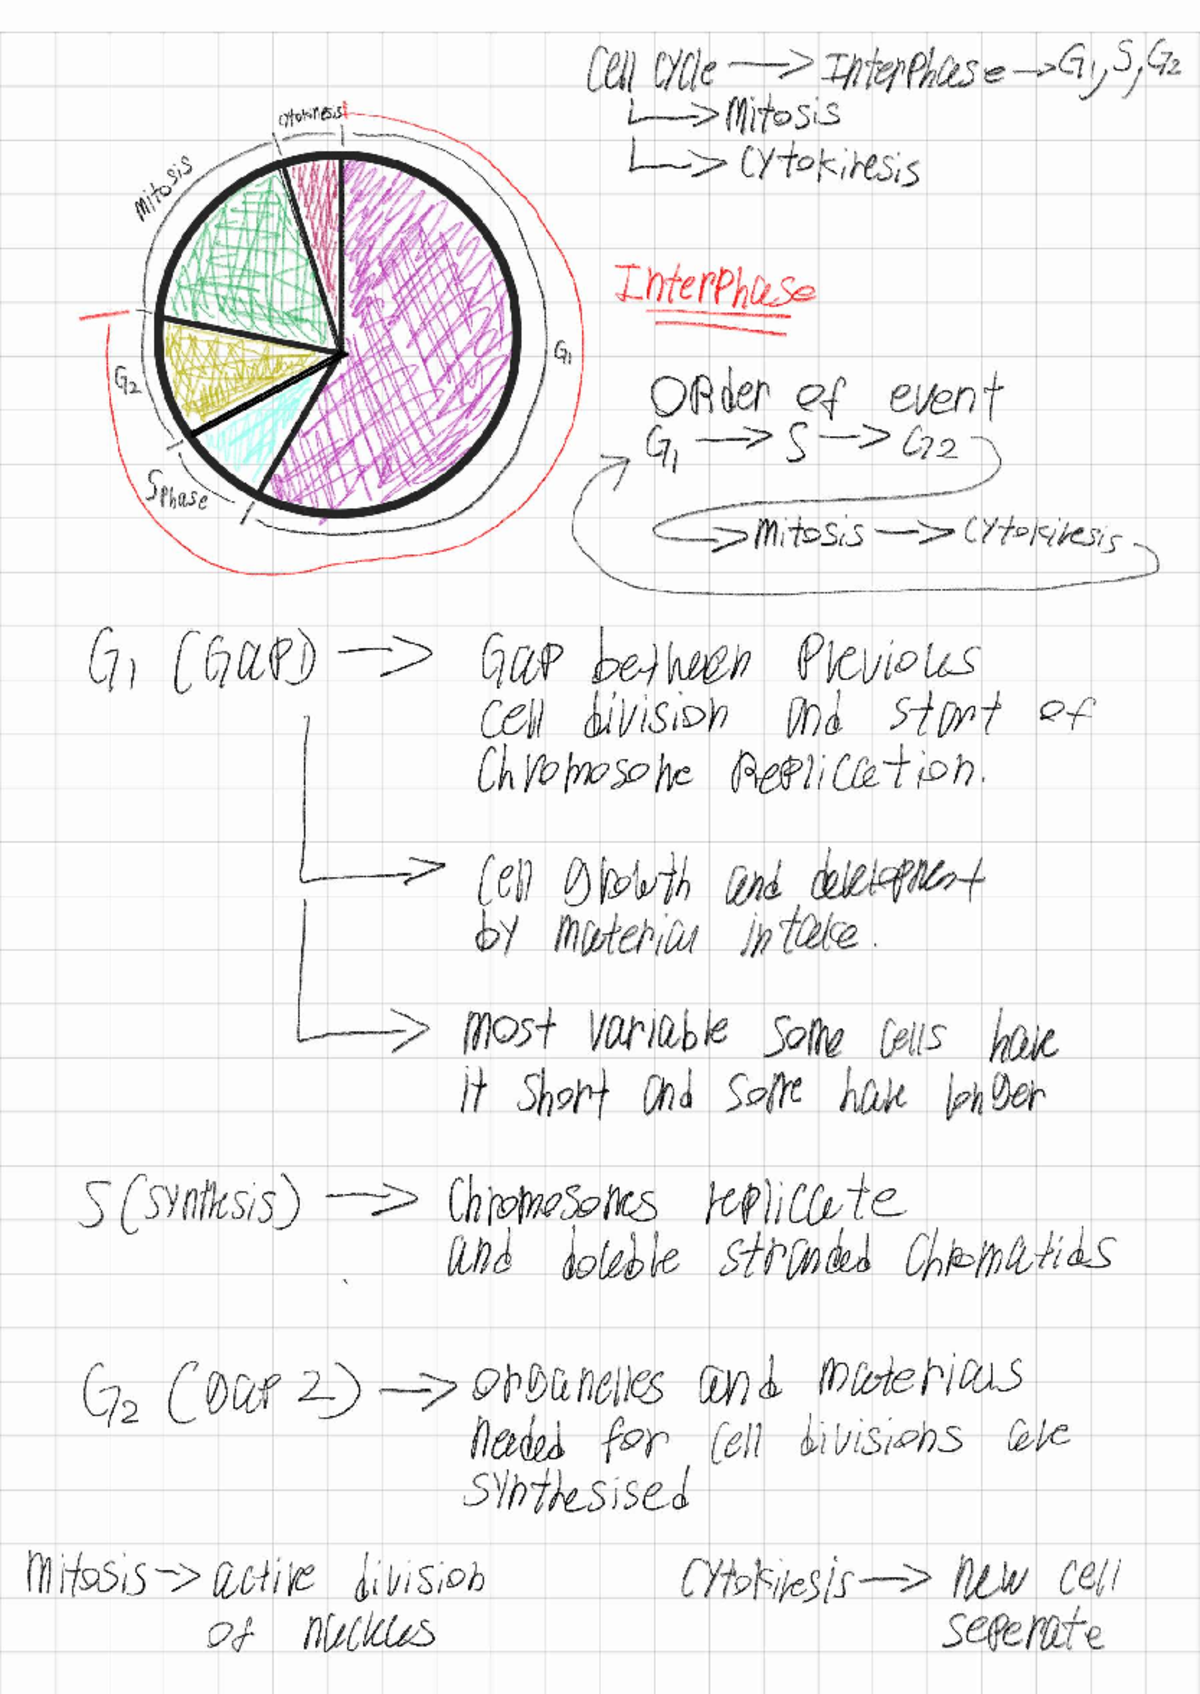 Cell cycle → Interphase → G1, S, G2
→ Mitosis
→ Cytokinesis
Cytokinesis
Mitosis
G1
G2
S phase
Interphase
Order of event
G1 → S → G2
→ Mitosis → Cytokinesis
G1 (Gap1) → Gap between Previous
cell division and start of
Chromosome Replication.
→ Cell growth and development
by material intake.
→ most variable some cells have
it short and some have longer
S (Synthesis) → Chromosomes replicate
and double stranded chromatids
G2 (Gap 2) → Organelles and materials
needed for cell divisions are
synthesised
Mitosis → active division
of nucleus
Cytokinesis → new cell
seperate